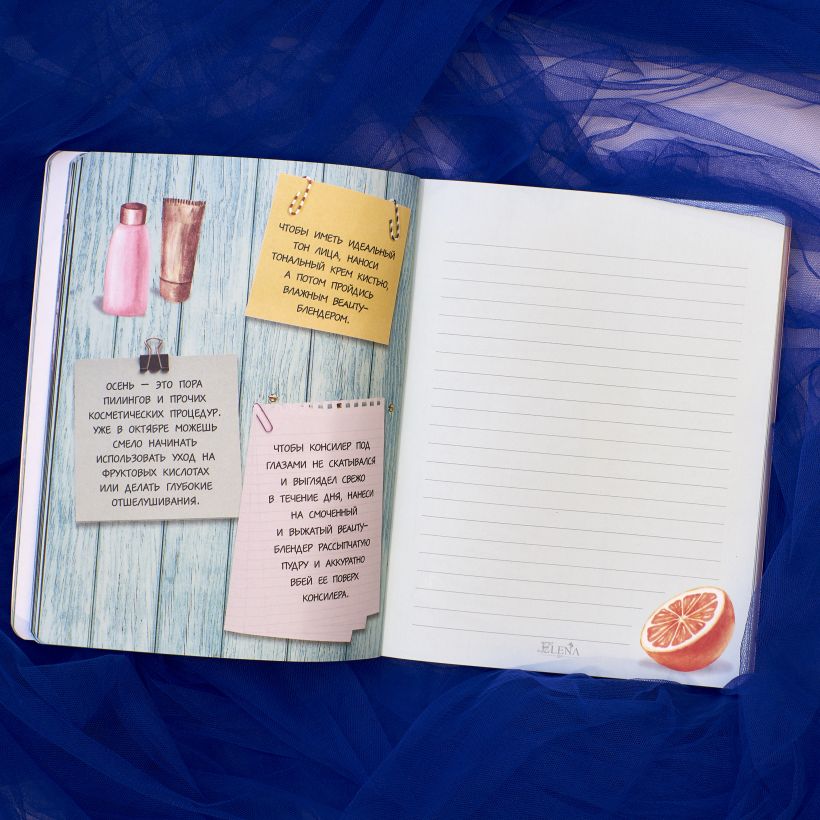 ЧТОБЫ ИМЕТЬ ИДЕАЛЬНЫЙ
ТОН ЛИЦА, НАНОСИ
ТОНАЛЬНЫЙ КРЕМ КИСТЬЮ,
А ПОТОМ ПРОЙДИСЬ
ВЛАЖНЫМ BEAUTY-
БЛЕНДЕРОМ.
ОСЕНЬ — ЭТО ПОРА
ПИЛИНГОВ И ПРОЧИХ
КОСМЕТИЧЕСКИХ ПРОЦЕДУР.
УЖЕ В ОКТЯБРЕ МОЖЕШЬ
СМЕЛО НАЧИНАТЬ
ИСПОЛЬЗОВАТЬ УХОД НА
ФРУКТОВЫХ КИСЛОТАХ
ИЛИ ДЕЛАТЬ ГЛУБОКИЕ
ОТШЕЛУШИВАНИЯ.
ЧТОБЫ КОНСИЛЕР ПОД
ГЛАЗАМИ НЕ СКАТЫВАЛСЯ
И ВЫГЛЯДЕЛ СВЕЖО
В ТЕЧЕНИЕ ДНЯ, НАНЕСИ
НА СМОЧЕННЫЙ
И ВЫЖАТЫЙ BEAUTY-
БЛЕНДЕР РАССЫПЧАТУЮ
ПУДРУ И АККУРАТНО
ВБЕЙ ЕЕ ПОВЕРХ
КОНСИЛЕРА.
ELENA